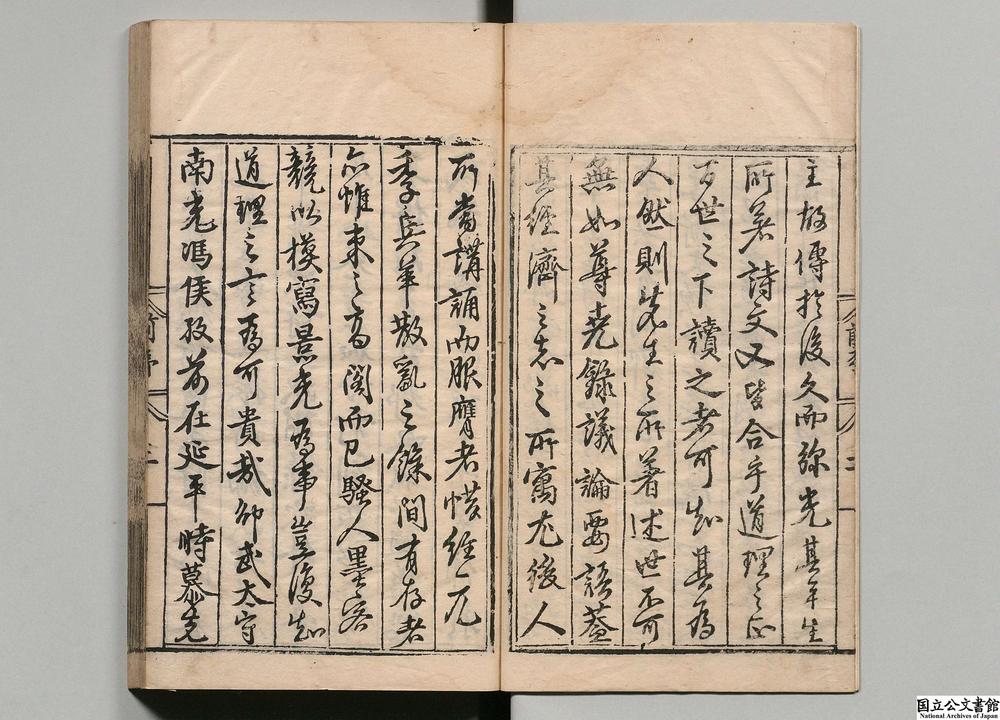 主故傳於後久而弥光其平生
所著詩文又皆合乎道理之正
百世之下讀之者可知其為
人然則先生之所著述世不可
無如尊堯錄議論要語蓋
其經濟之志之所寓尤後人
所當講誦而服膺者惜經元
季兵革散亂之餘間有存者
亦惟束之高閣而已騷人墨客
競以摸寫景光為事豈復知
道理之言為可貴哉邵武太守
南堯馮侯孜前在延平時慕先
前序
二
前序
三
国立公文書館
National Archives of Japan